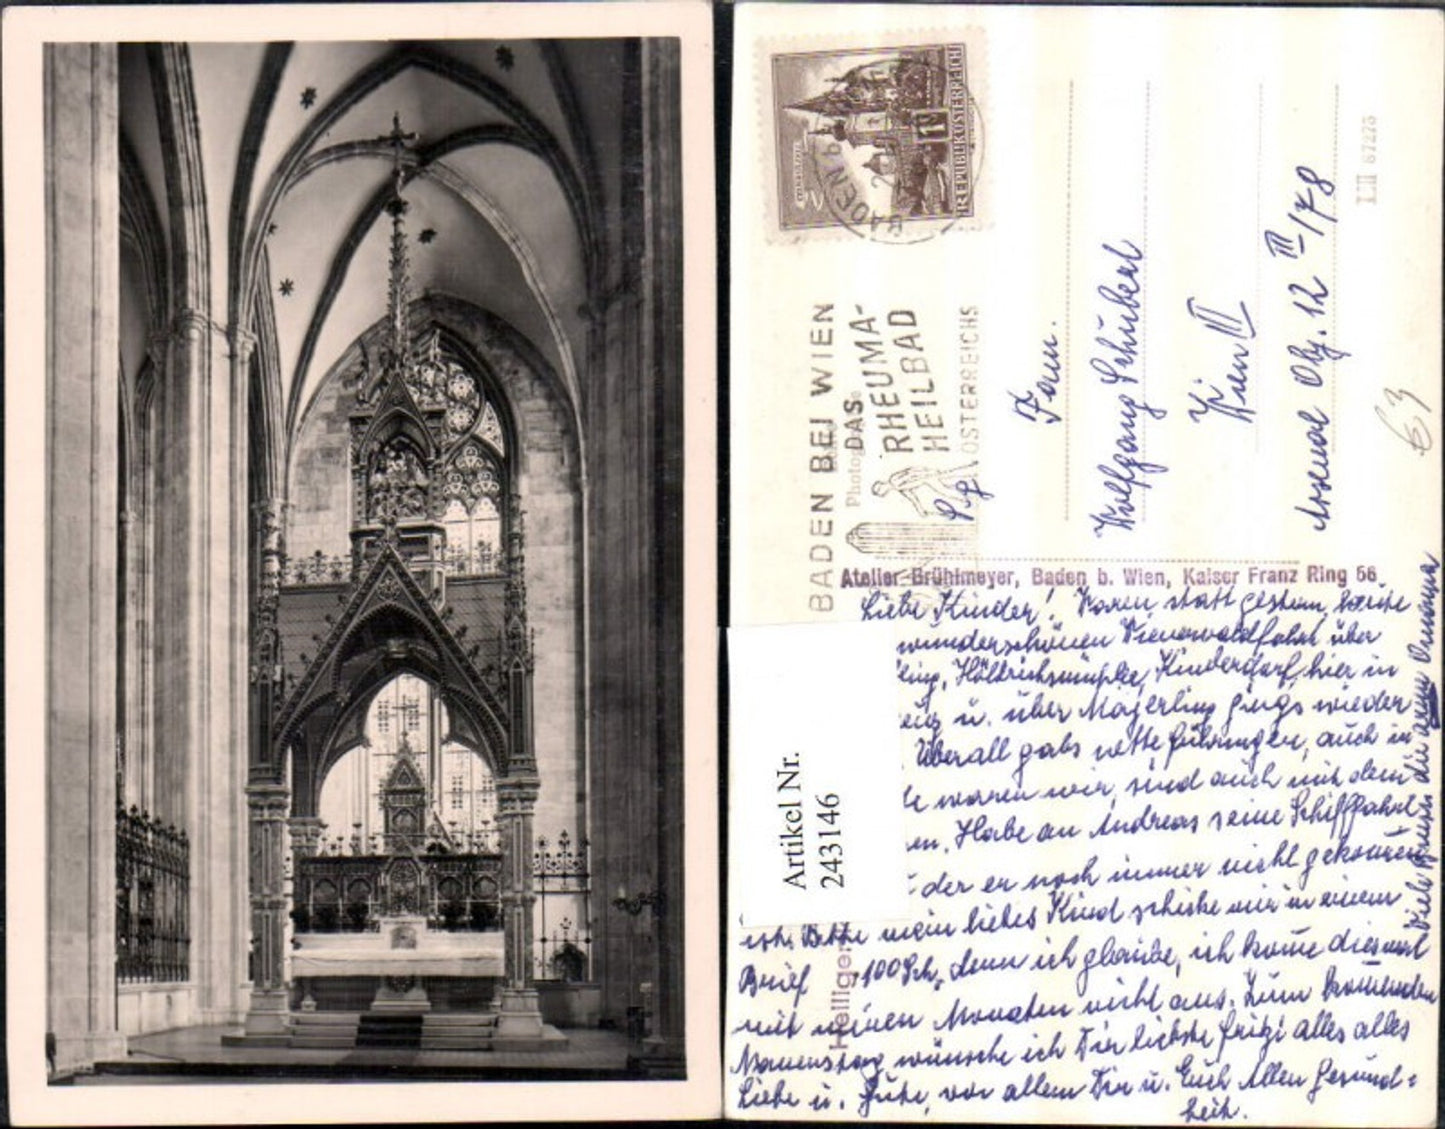 REPUBLIK ÖSTERREICH
BADEN b
BADEN BEI WIEN
DAS
RHEUMA-
HEILBAD
ÖSTERREICHS
Fam.
Wolfgang Schubert
Wien III
Arsenal Obj. 12 III/78
LII 67275
€3
Atelier Brühlmeyer, Baden b. Wien, Kaiser Franz Ring 56
Artikel Nr.
243146
Liebe Kinder! Waren, statt gestern, heute
wunderschönen Wienerwaldfahrt über
Kinderdorf, hier in
u. über Mayerling gings wieder
Überall gabs nette Führungen, auch in
waren wir, sind auch mit dem
Habe an Andreas seine Schifffahrt
der er noch immer nicht gekommen
ist. Bitte mein liebes Kind schicke mir in einem
Brief 100 Sch, denn ich glaube, ich komme diesmal
mit meinen Monaten nicht aus. Zum kommenden
Namenstag wünsche ich Dir liebste Fritzi alles alles
Liebe u. Gute, vor allem Dir u. Euch Allen Gesund=
heit.
Viele